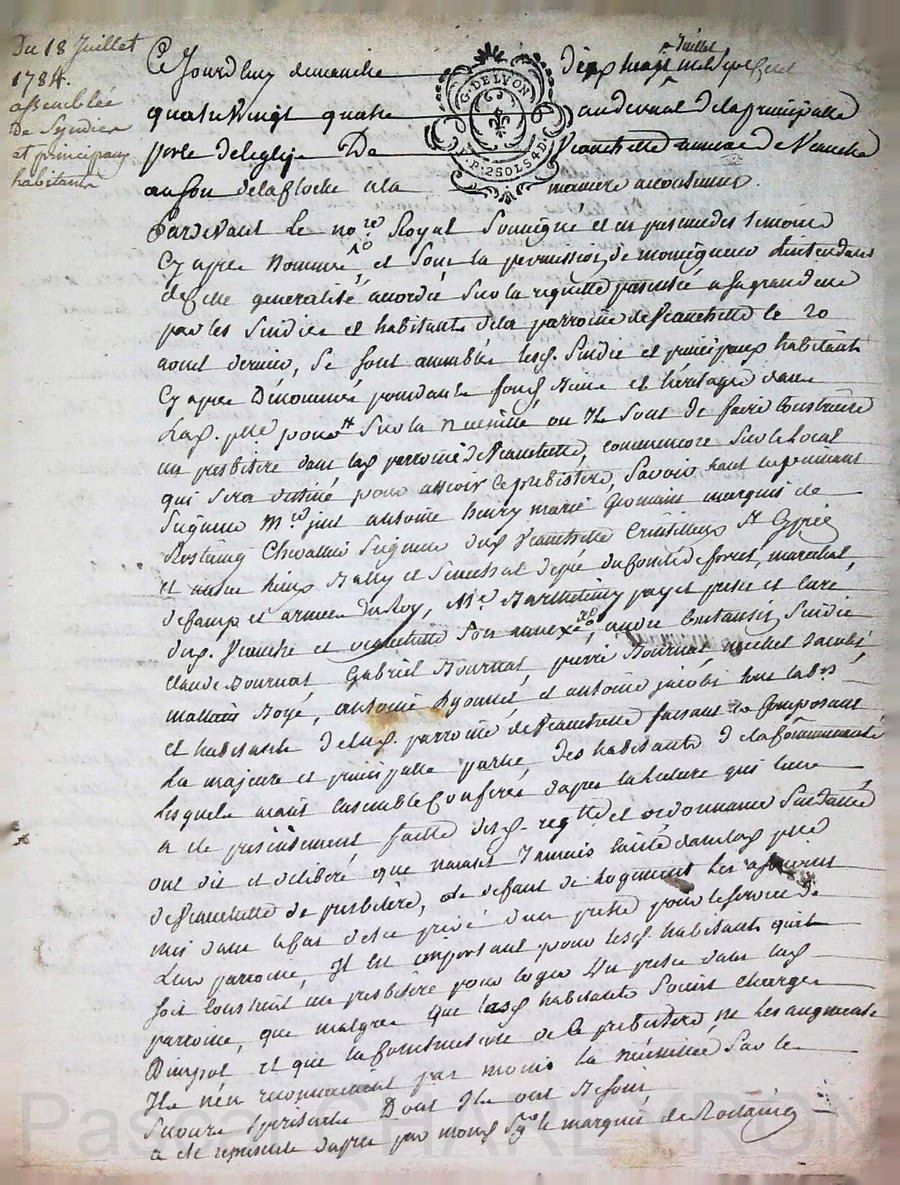 Du 18 Juillet
1784.
assemblée
De Syndics
et principaux
habitants
Ce Jourdhuy dimanche dix huit Juillet mil sept cent
quatre Vingt quatre au devant de la principalle
porte de leglise De Veauchette annexe de Veauche
au son de la Cloche a la maniere accoutumée.
G. DE LYON
P. P. 2 SOLS 4 D.
Pardevant Le no.re Royal Soussigné et en presence des temoins
Cy apres nommés, et sous la permission de monseigneur Lintendant
de cette generalité accordée sur la requette presentée a sa grandeur
par les Sindics et habitants de la parroisse de Veauchette le 20
aout dernier, se sont assemblés lesd. Sindic et principaux habitants
Cy apres Dénommés possedants fonds et héritages dans
Lad. p.sse pour sur la necessité ou Ils sont de faire Construire
un presbitere dans lad parroisse de Veauchette, comme encore sur le local
qui sera destiné pour assoir Ce presbitere, Savoir haut et puissant
Seigneur M.re just antoine henry marie Germain marquis de
Rostaing Chevallier Seigneur dud Veauchette St Cyprien
et autres lieux Bally et Senechal d'epée du Comté de forest, marechal
de Camp et armées du Roy, M.re Barthelemy payet pretre et Curé
dud. Veauche et Veauchette son annexe, andré Sindic
Claude Bournat Gabriel Bournat, pierre Bournat michel Jacobi
antoine et antoine jacobi tous lab.rs
et habitants de lad. parroisse de Veauchette faisant et Composant
La majeure et principalle partie des habitants de la Communauté
Lesquels ayant Ensemble Conferé d'apres la lecture qui leur
a été presentement faitte desd. reg.tte et ordonnance Susdattée
ont dit et déliberé que nayant Jamais existé dans lad p.sse
de Veauchette de presbitere, le deffaut de Logement Les auroient
mis dans le Cas detre privé d'un pretre pour le service de
Leur parroisse, Il est important pour lesd. habitants quil
soit Construit un presbitere pour loger Un pretre dans lad
parroisse, que malgré que lesd habitants soient chargés
Dimpot et que la Construction de Ce presbitere, ne les augmente
Ils n'en reconnaissent pas moins la necessité par le
Secours spirituels Dont Ils ont Besoin
a été representé d'apres par mond Sg.r le marquis de Rostaing
Pascal CHARLEYRON